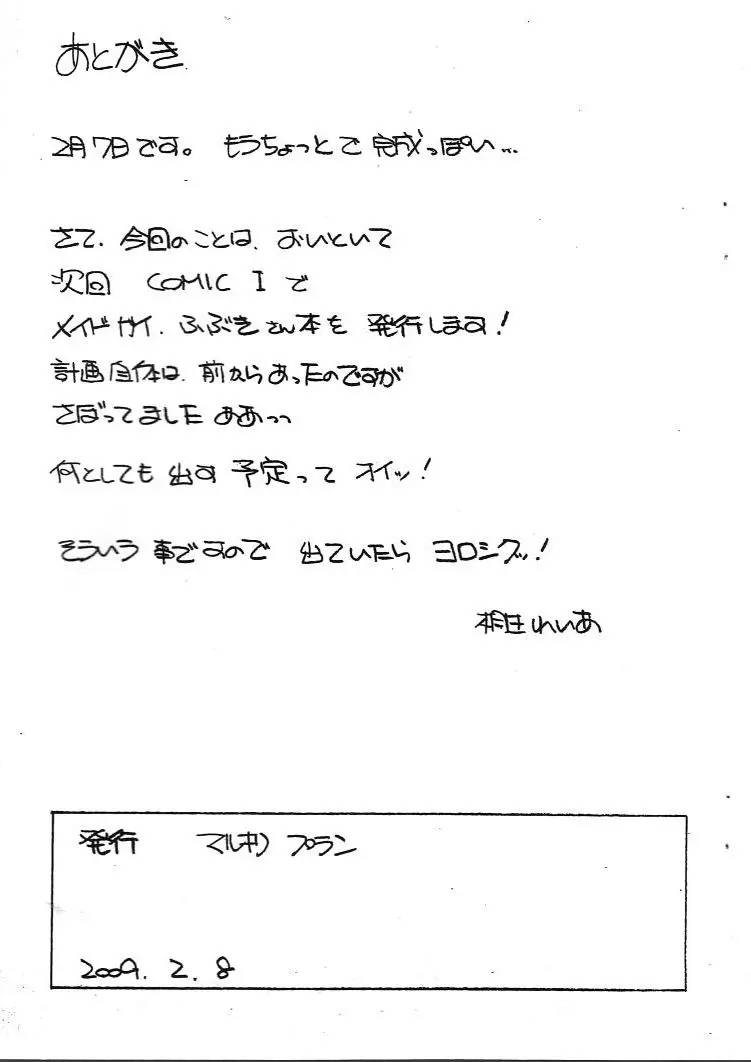 あとがき
2月7日です。 もうちょっとで完成っぽい...
さて、今回のことは、おいといて
次回 COMIC I で
メイドガイ、ふぶきさん本を 発行します!
計画自体は、前からあったのですが
さぼってました ああっっ
何としても 出す 予定って オイッ!
そういう 事ですので 出ていたら ヨロシクッ!
れいあ
発行 マルキリ プラン
2009. 2. 8